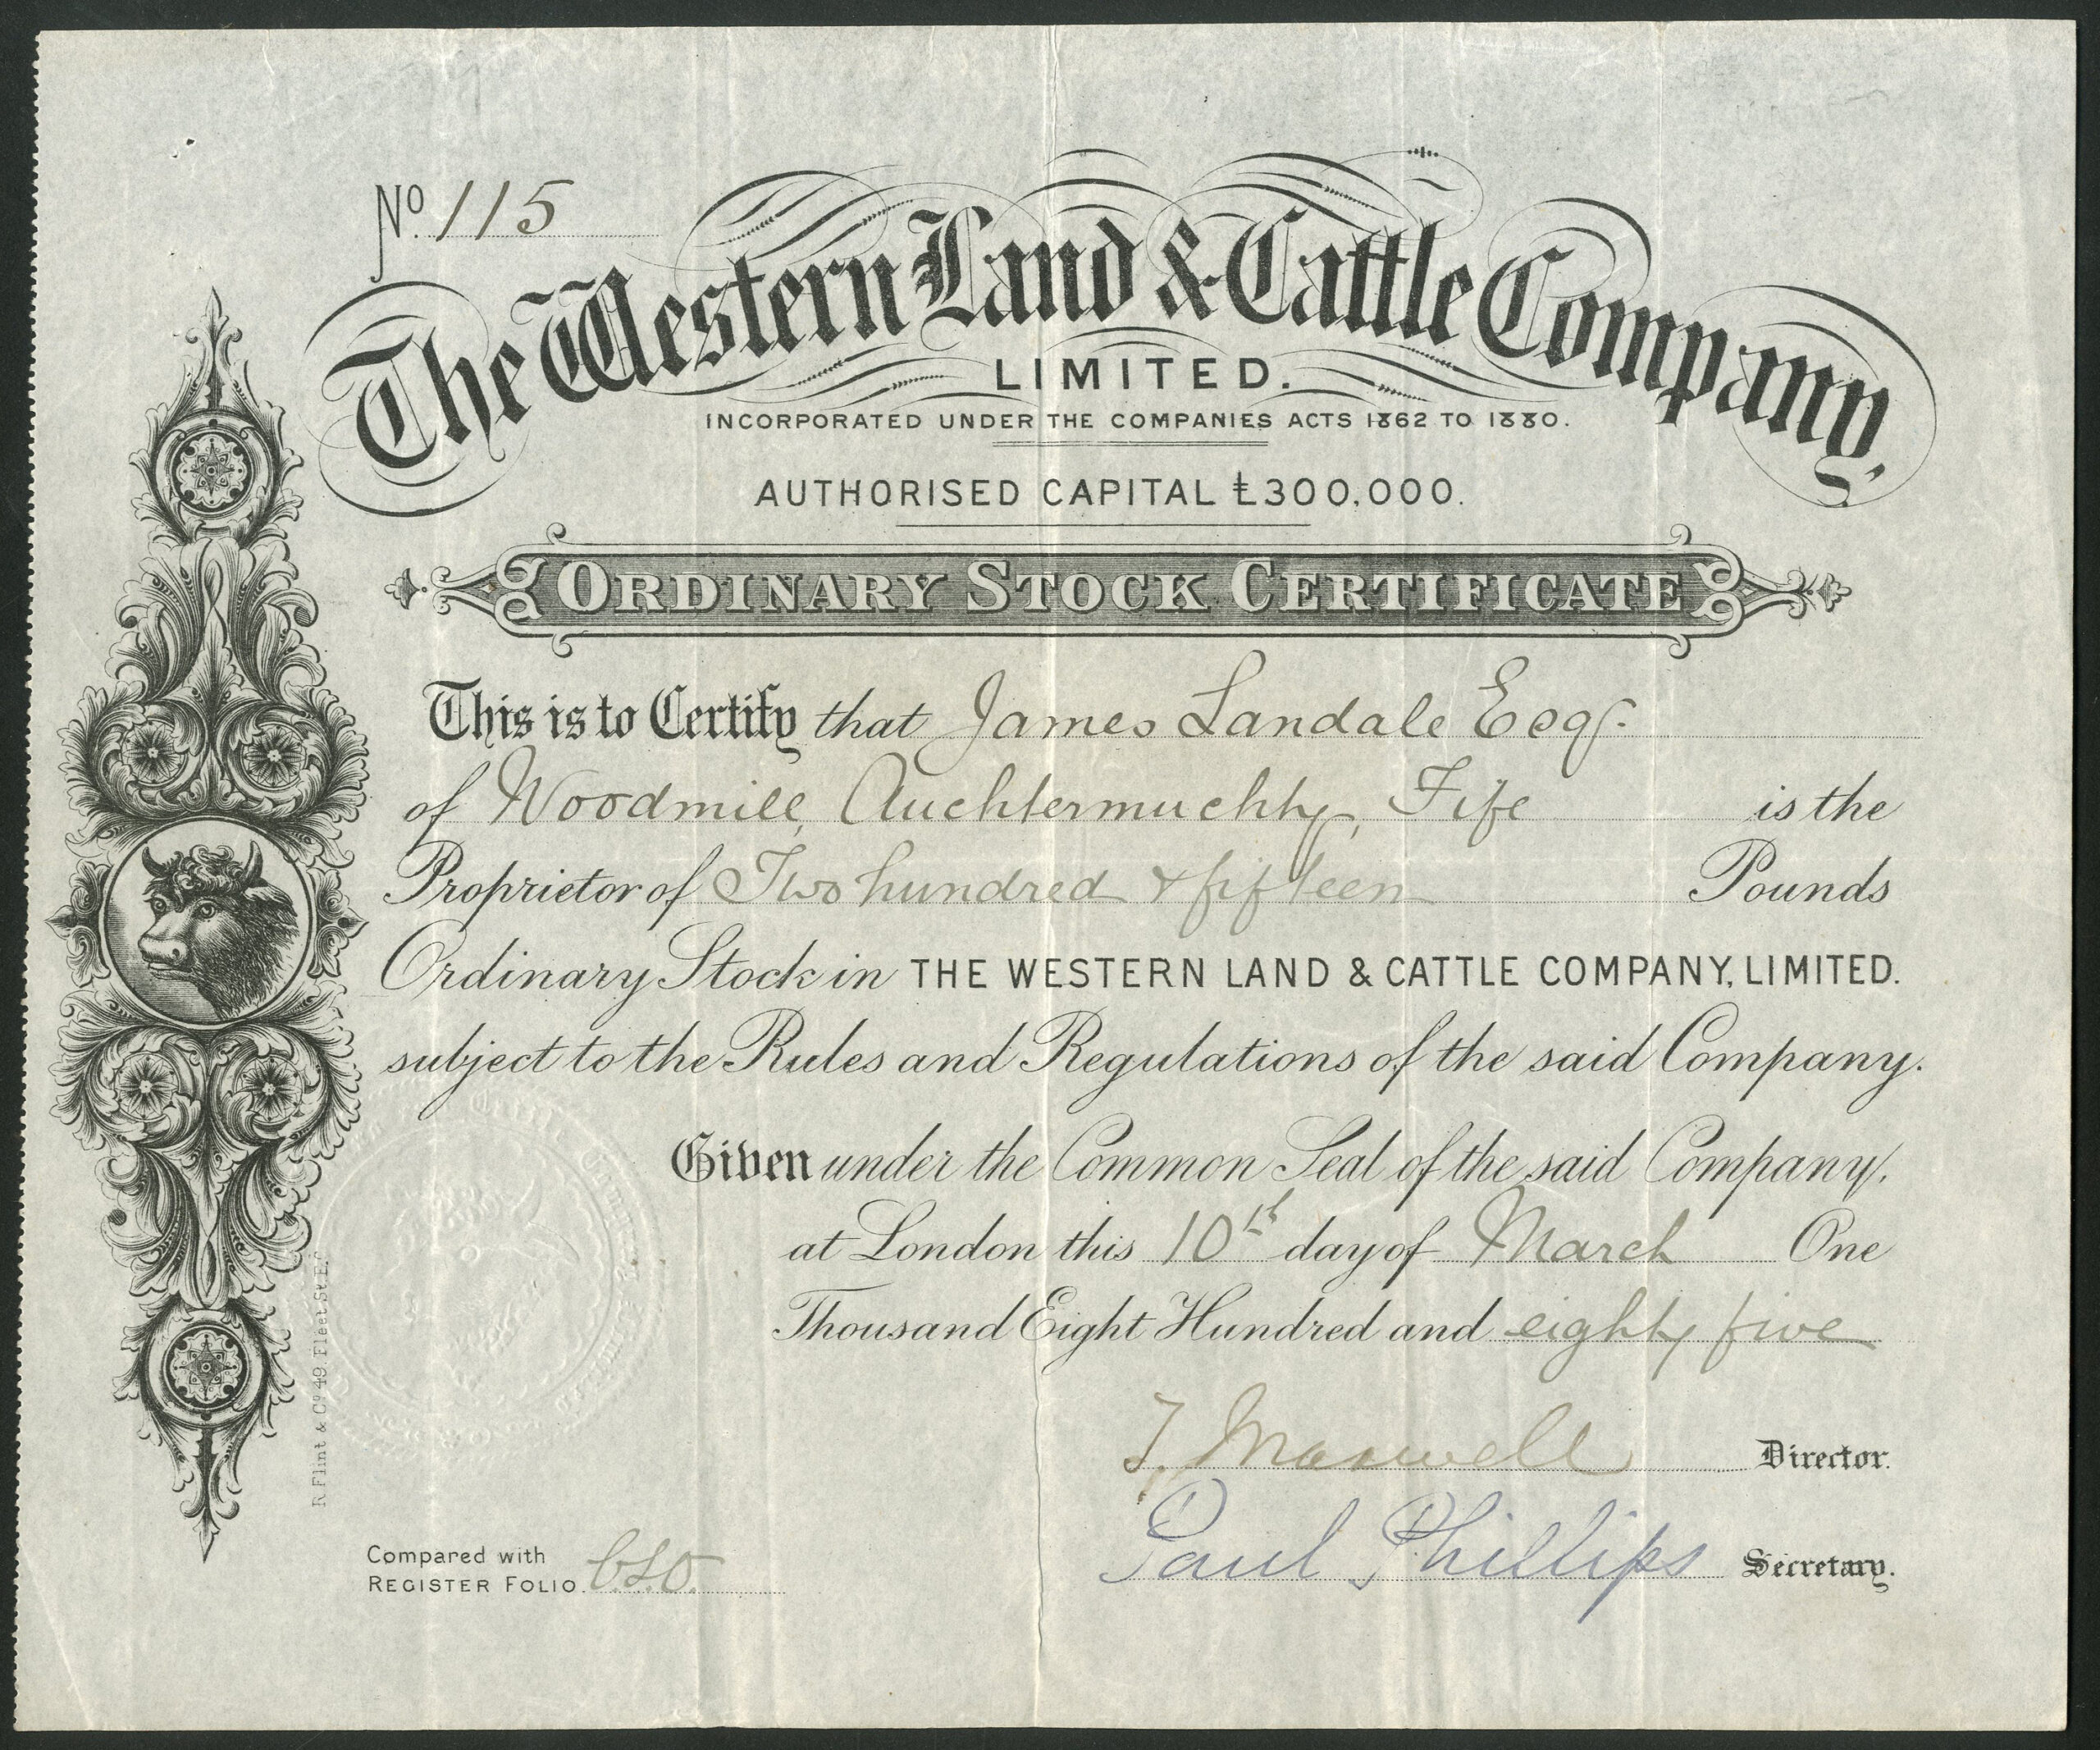 No. 115
The Western Land & Cattle Company,
LIMITED.
INCORPORATED UNDER THE COMPANIES ACTS 1862 TO 1880.
AUTHORISED CAPITAL £300,000.
ORDINARY STOCK CERTIFICATE
This is to Certify that James Landale Esqr.
of Woodmill, Auchtermuchty, Fife is the
Proprietor of Two hundred & fifteen Pounds
Ordinary Stock in THE WESTERN LAND & CATTLE COMPANY, LIMITED.
subject to the Rules and Regulations of the said Company.
Given under the Common Seal of the said Company,
at London this 10th day of March One
Thousand Eight Hundred and eighty five
Maxwell Director.
Paul Phillips Secretary.
Compared with
REGISTER FOLIO
R Flint & Co. 49 Fleet St E.C